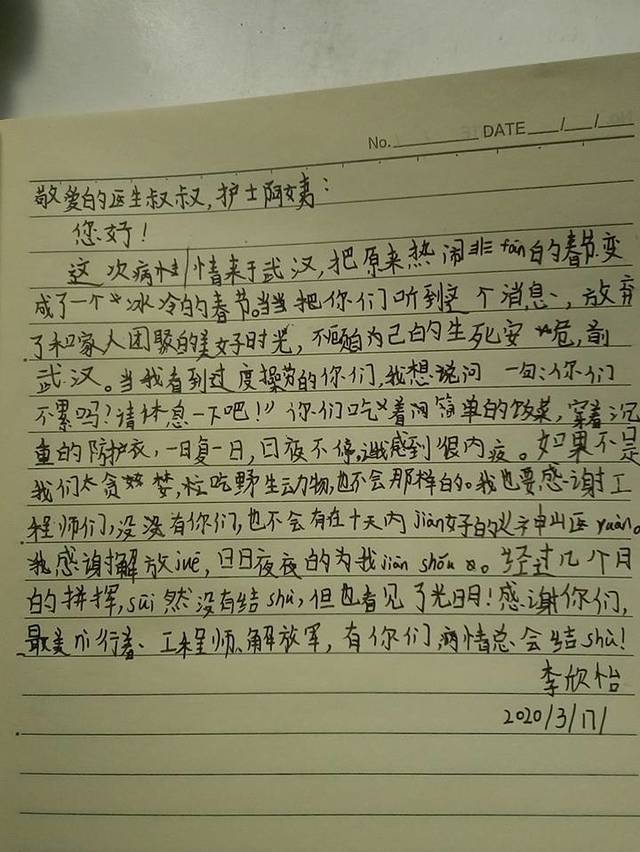 No. DATE / /
敬爱的医生叔叔，护士阿姨：
您好！
这次病情来于武汉，把原来热闹非fán的春节变
成了一个冰冷的春节。当当把你们听到这个消息，放弃
了和家人团聚的美好时光，不顾自己的生死安危，前
武汉。当我看到过度操劳的你们，我想说问一句：你们
不累吗？请休息一下吧！你们吃着简单的饭菜，穿着沉
重的防护衣，一日复一日，日夜不停，让我感到很内疚。如果不是
我们太贪婪，忙吃野生动物，也不会那样的。我也要感谢工
程师们，没没有你们，也不会有在十天内jiàn好的火神山医yuàn。
我感谢解放juē，日日夜夜的为我jiān shǒu。经过几个月
的拼挥，suī然没有结shù，但也看见了光明！感谢你们，
最美的行者、工程师、解放军，有你们，病情总会结shù！
李欣怡
2020/3/17/